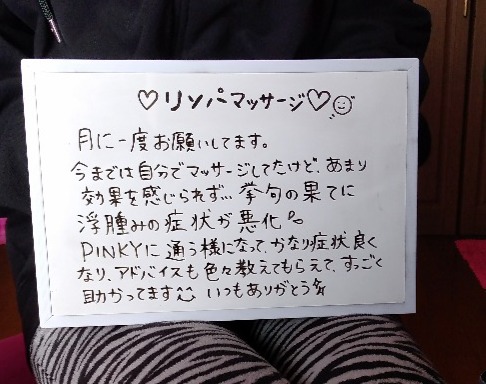 ♡リンパマッサージ♡
月に一度お願いしてます。
今までは自分でマッサージしてたけど、あまり
効果を感じられず… 挙句の果てに
浮腫みの症状が悪化
PINKYに通う様になって、かなり症状良く
なり、アドバイスも色々教えてもらえて、すっごく
助かってます いつもありがとう